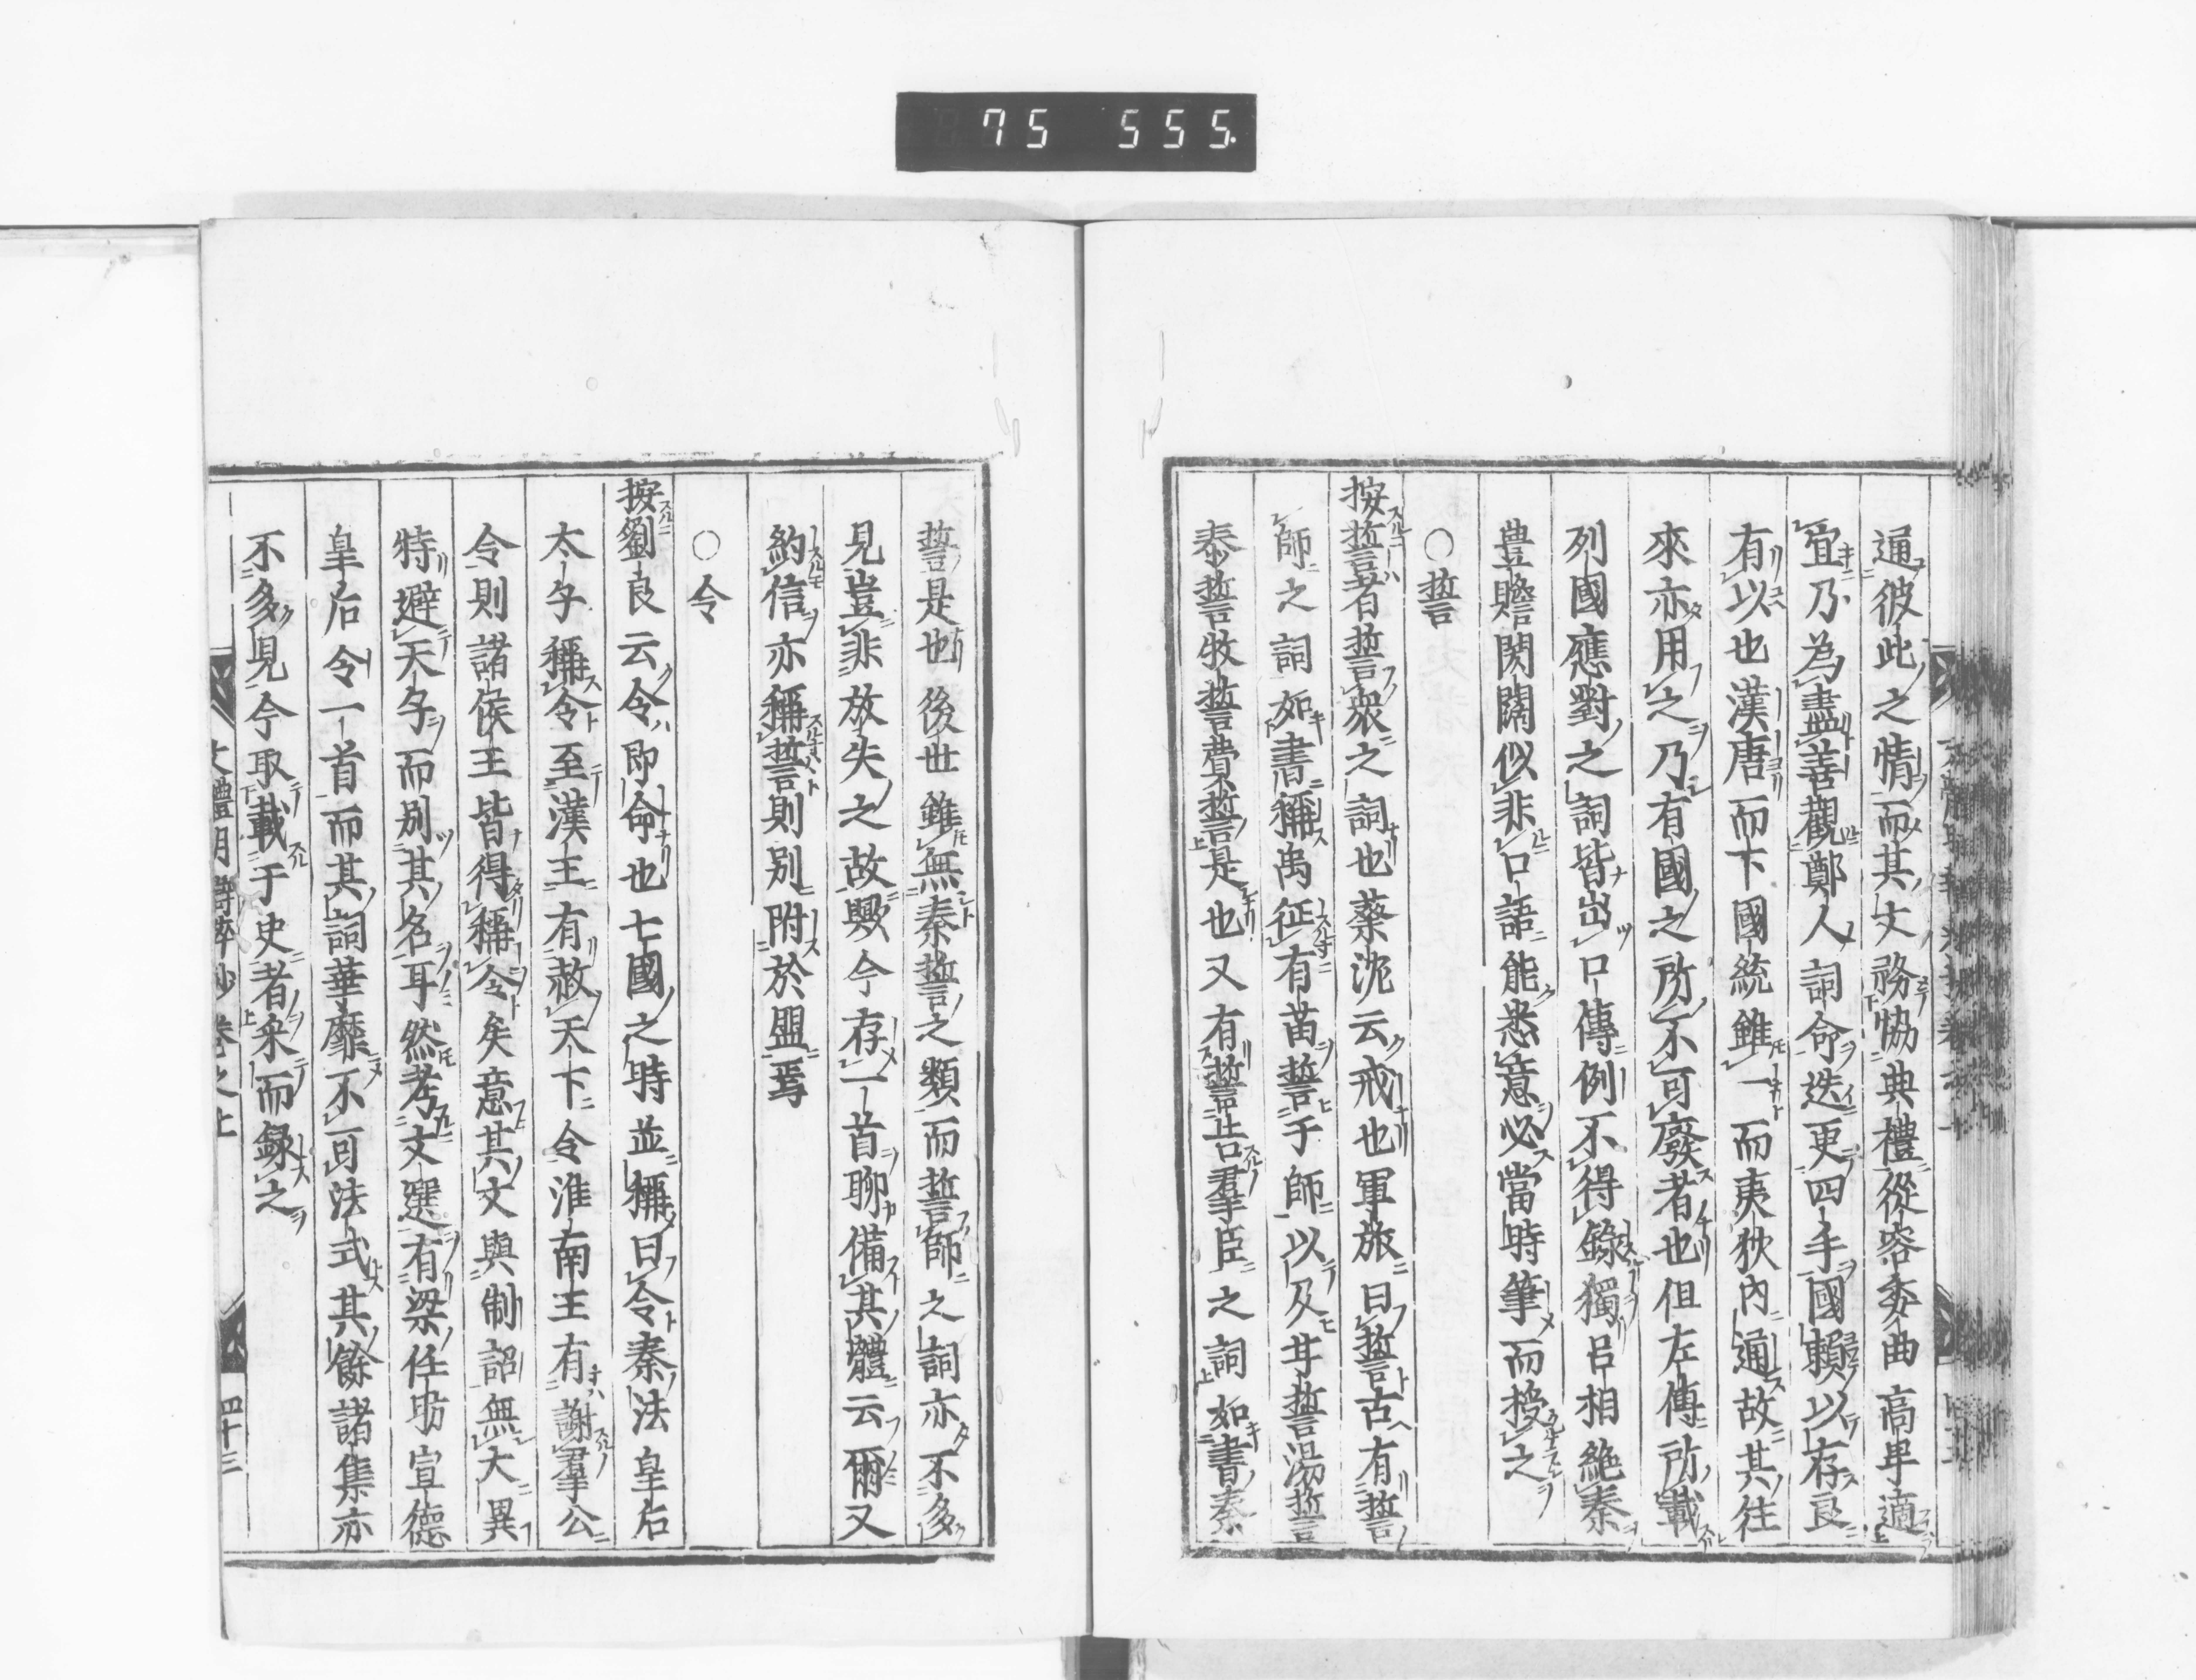 75 555.
通彼此之情而其文務協典禮從容委曲高卑適
宜乃為盡善觀鄭人詞命迭更四手國賴以存良
有以也漢唐而下國統雖一而夷狄內通故其往
來亦用之乃有國之所不可廢者也但左傳所載
列國應對之詞皆出口傳例不得錄獨呂相絶秦
豊贍閎闊似非口語能悉意必當時筆而授之
○誓
按誓者誓衆之詞也蔡沈云戒也軍旅曰誓古有誓
師之詞如書稱禹征有苗誓于師以及甘誓湯誓
泰誓牧誓費誓是也又有誓告羣臣之詞如書秦
誓是也後世雖無秦誓之類而誓師之詞亦不多
見豈非放失之故歟今存一首聊備其體云爾又
約信亦稱誓則別附於盟焉
○令
按劉良云令即命也七國之時並稱曰令秦法皇后
太子稱令至漢王有赦天下令淮南王有謝羣公
令則諸侯王皆得稱令矣意其文與制詔無大異
特避天子而別其名耳然考文選有梁任昉宣德
皇后令一首而其詞華靡不可法式其餘諸集亦
不多見今取載于史者采而録之
文體明辯粹抄 卷之上 四十三